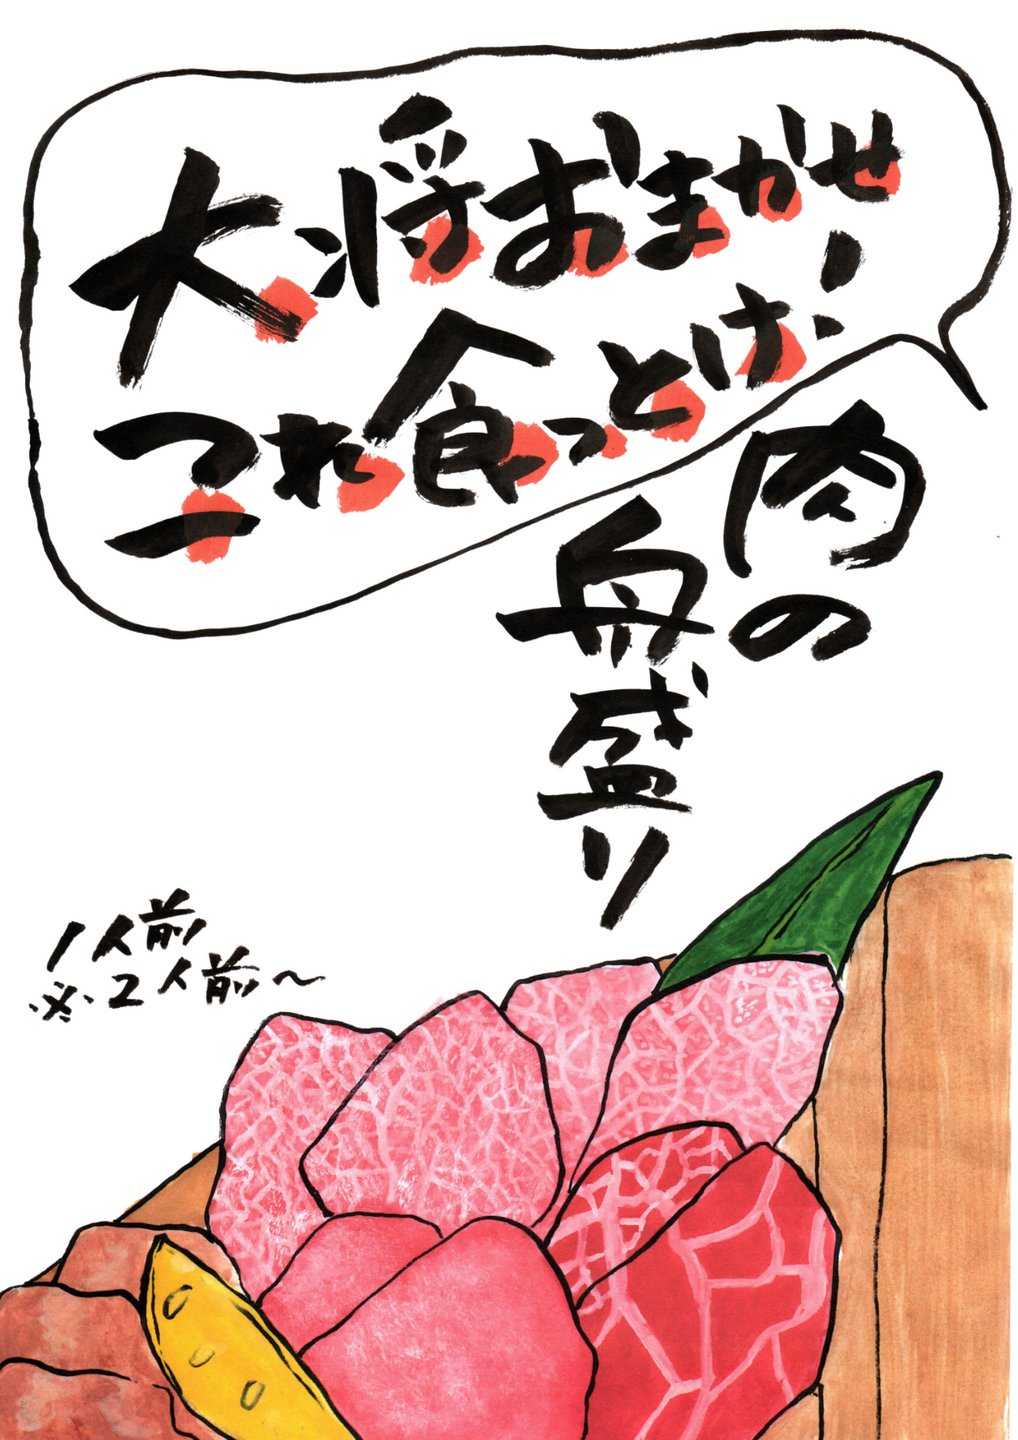 大将おまかせ
これ食っとけ!
肉の
舟盛り
1人前
※2人前~